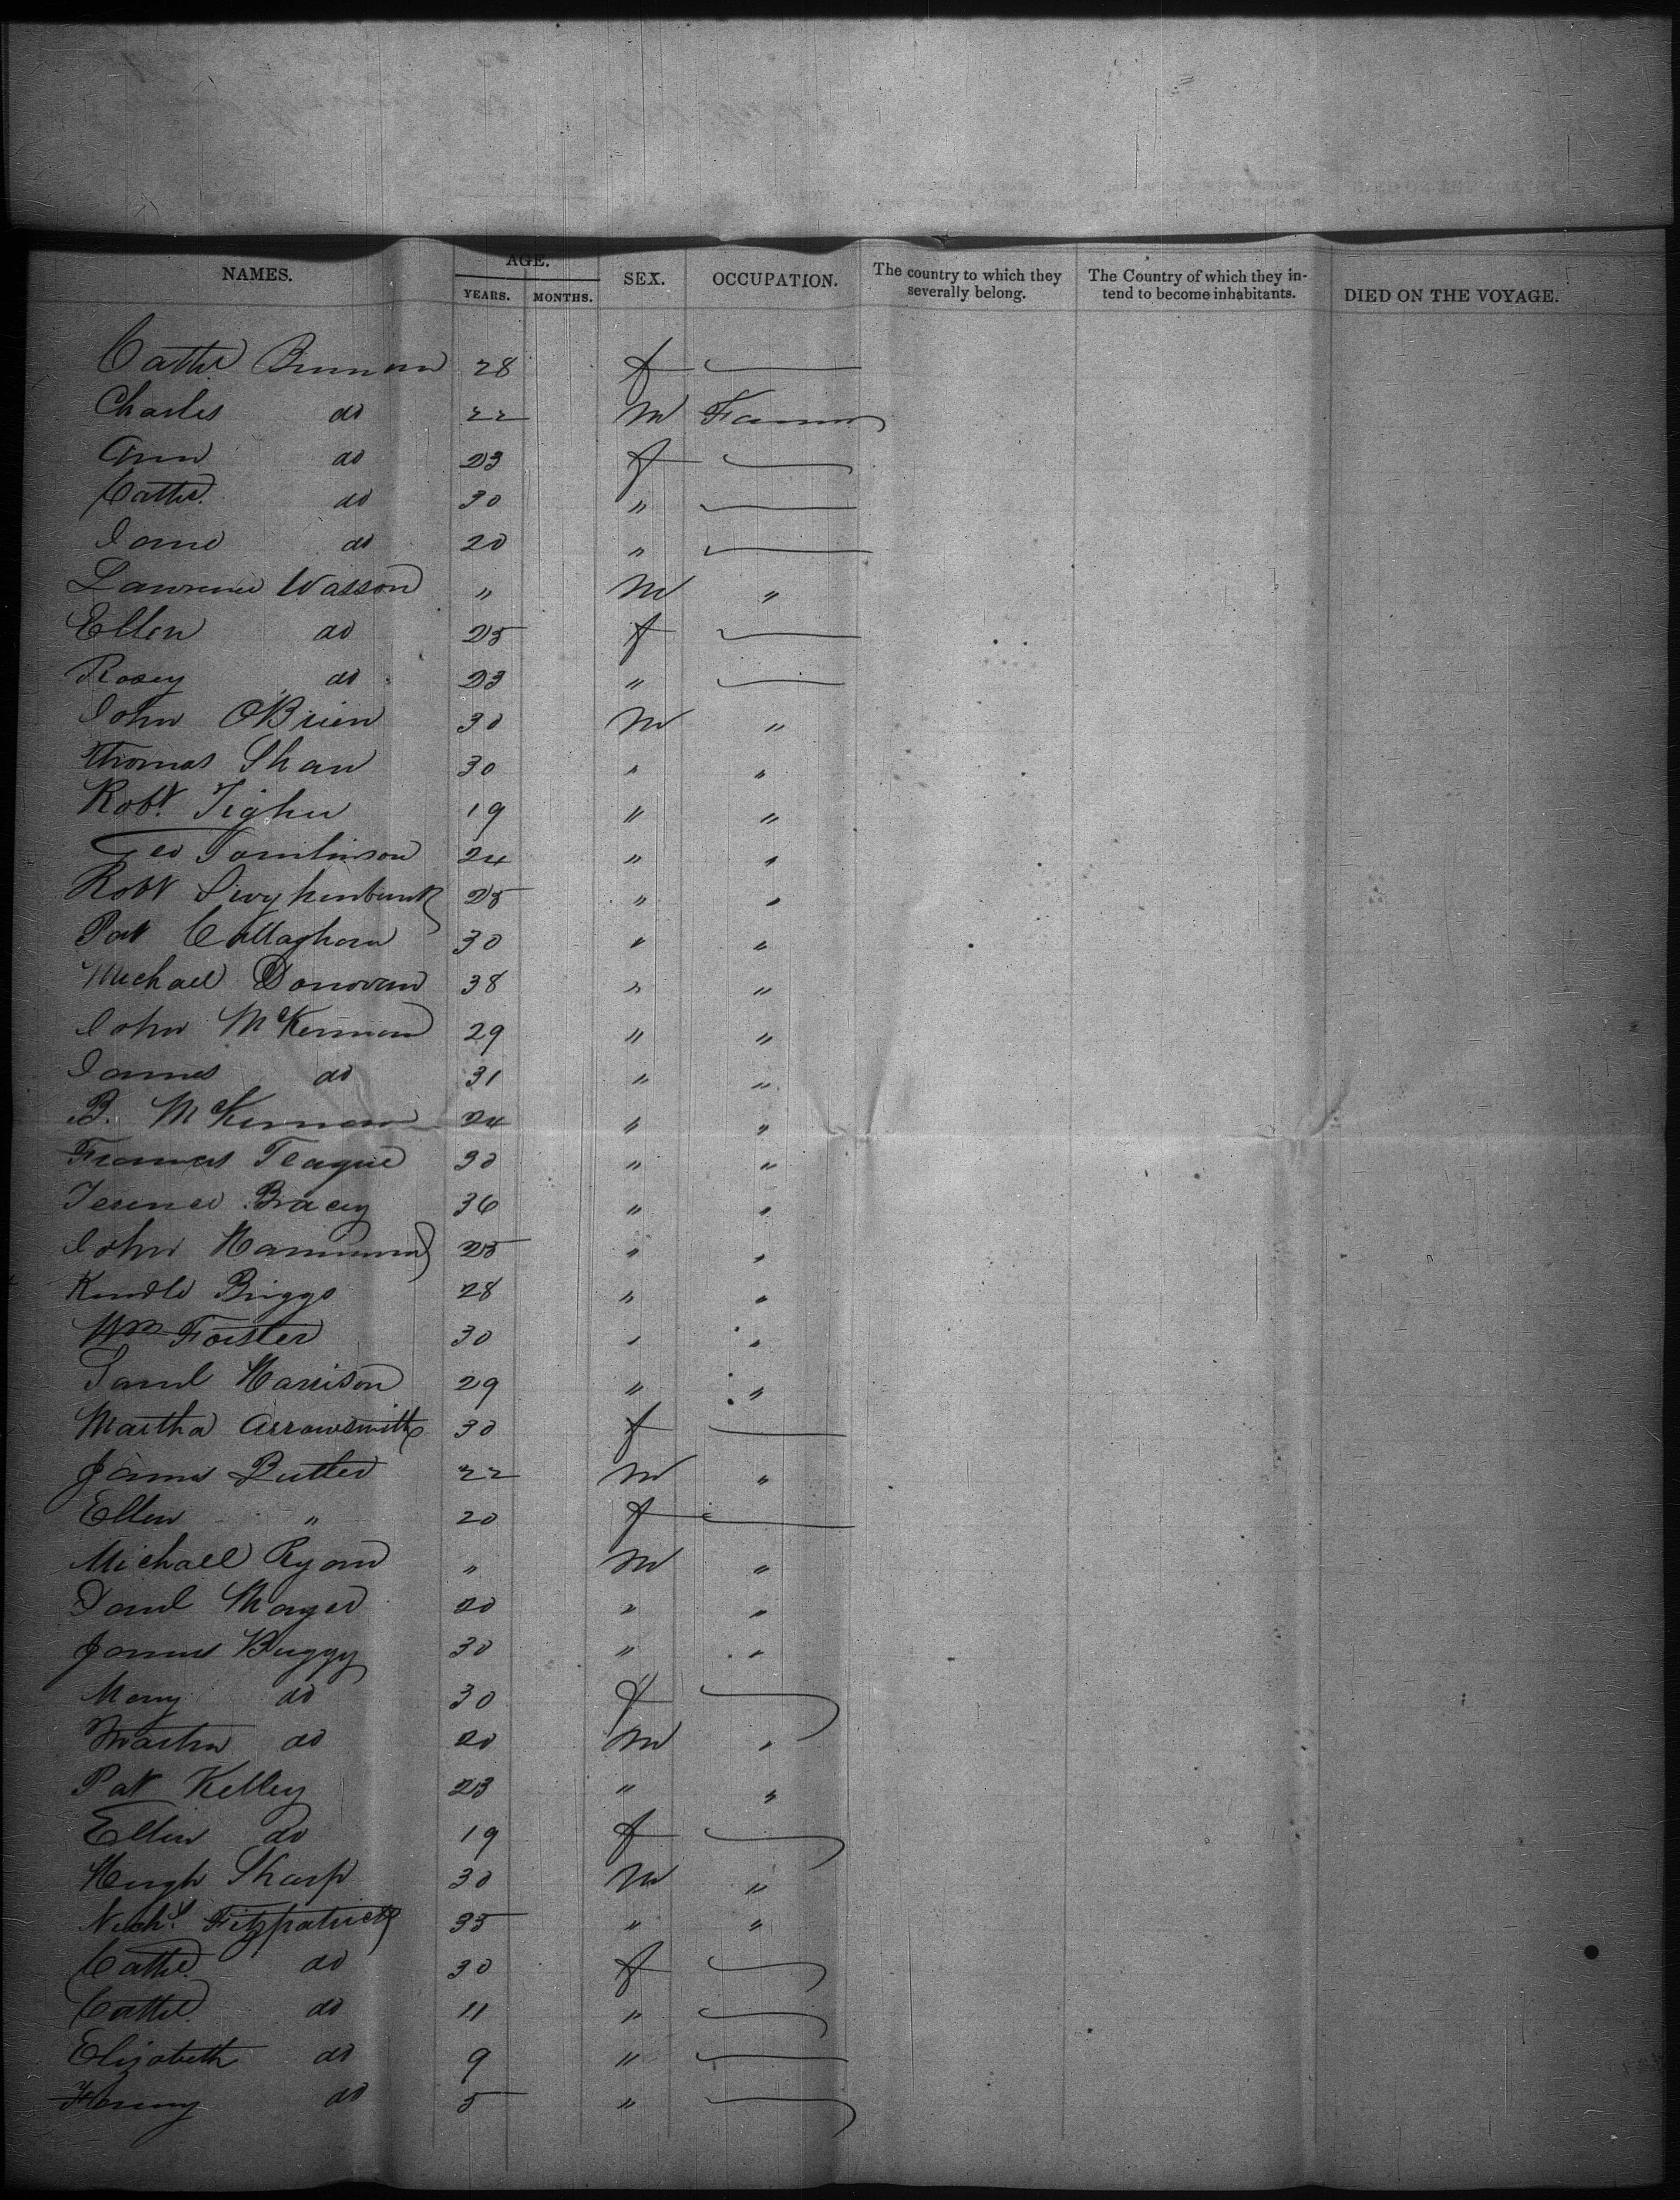 NAMES. AGE. YEARS. MONTHS. SEX. OCCUPATION. The country to which they severally belong. The Country of which they intend to become inhabitants. DIED ON THE VOYAGE.
Cathe Brennan 28 f
Charles do 22 M Farmer
Ann do 23 f
Cathe. do 30 "
Jane do 20 "
Lawrence Wasson " M "
Ellen do 25 f
Rosey do 23 "
John OBrien 30 M "
Thomas Shaw 30 " "
Robt. Tighe 19 " "
Geo Tomlinson 24 " "
Robt 25 " "
Pat Callaghan 30 " "
Michael Donovan 38 " "
John McKernan 29 " "
James do 31 " "
B. McKernan 24 " "
Frances Teague 30 " "
Terence Bracey 36 " "
John Hammond 25 " "
Kendle Briggs 28 " "
Wm Forster 30 " "
Saml Harrison 29 " "
Martha Arrowsmith 30 f
James Butler 22 M "
Ellen " 20 f
Michael Ryan " M "
Danl Mayer 20 " "
James Buggy 30 " "
Mary do 30 f
Martin do 20 M "
Pat Kelley 23 " "
Ellen do 19 f
Hugh Sharp 30 M "
Nichs. Fitzpatrick 35 " "
Cathe. do 30 f
Cathe. do 11 "
Elizabeth do 9 "
Fanny do 5 "